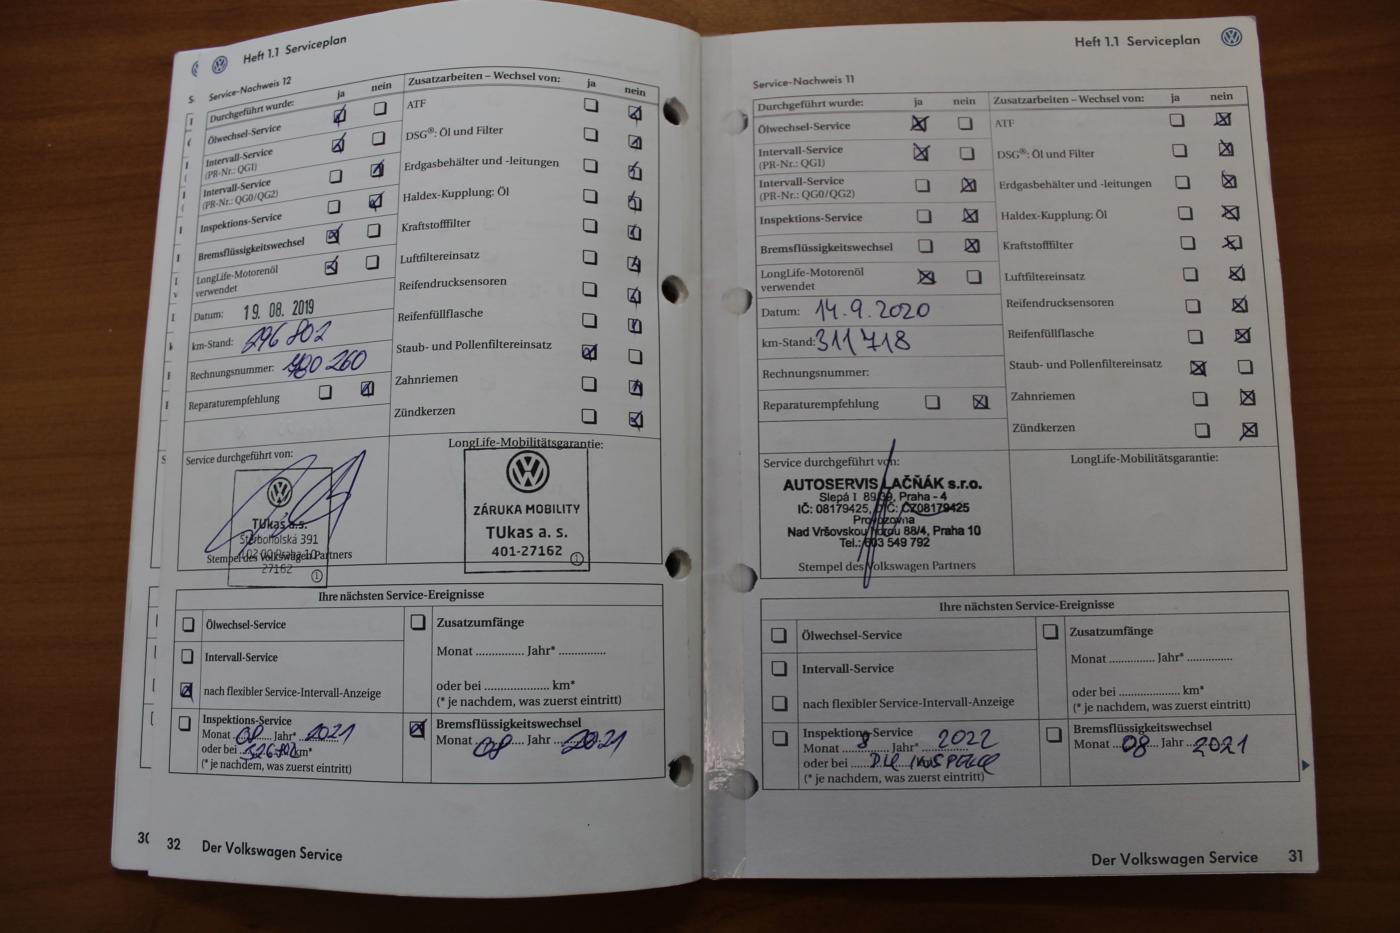 Heft 1.1 Serviceplan
Service-Nachweis 12
Durchgeführt wurde: ja nein
Ölwechsel-Service
Intervall-Service
(PR-Nr.: QGI)
Intervall-Service
(PR-Nr.: QG0/QG2)
Inspektions-Service
Bremsflüssigkeitswechsel
LongLife-Motorenöl
verwendet
Datum: 19. 08. 2019
km-Stand: 296 802
Rechnungsnummer: 480 260
Reparaturempfehlung
Zusatzarbeiten – Wechsel von: ja nein
ATF
DSG®: Öl und Filter
Erdgasbehälter und -leitungen
Haldex-Kupplung: Öl
Kraftstofffilter
Luftfiltereinsatz
Reifendrucksensoren
Reifenfüllflasche
Staub- und Pollenfiltereinsatz
Zahnriemen
Zündkerzen
Service durchgeführt von:
TUkas a.s.
Štěrboholská 391
102 00 Praha 10
27162
1
Stempel des Volkswagen Partners
LongLife-Mobilitätsgarantie:
ZÁRUKA MOBILITY
TUkas a. s.
401-27162
1
Ihre nächsten Service-Ereignisse
Ölwechsel-Service
Intervall-Service
nach flexibler Service-Intervall-Anzeige
Inspektions-Service
Monat 08 Jahr* 2021
oder bei 326 802 km*
(* je nachdem, was zuerst eintritt)
Zusatzumfänge
Monat .............. Jahr* ..............
oder bei .................... km*
(* je nachdem, was zuerst eintritt)
Bremsflüssigkeitswechsel
Monat 08 Jahr 2021
30
32 Der Volkswagen Service
Heft 1.1 Serviceplan
Service-Nachweis 11
Durchgeführt wurde: ja nein
Ölwechsel-Service
Intervall-Service
(PR-Nr.: QG1)
Intervall-Service
(PR-Nr.: QG0/QG2)
Inspektions-Service
Bremsflüssigkeitswechsel
LongLife-Motorenöl
verwendet
Datum: 14.9.2020
km-Stand: 311 718
Rechnungsnummer:
Reparaturempfehlung
Zusatzarbeiten – Wechsel von: ja nein
ATF
DSG®: Öl und Filter
Erdgasbehälter und -leitungen
Haldex-Kupplung: Öl
Kraftstofffilter
Luftfiltereinsatz
Reifendrucksensoren
Reifenfüllflasche
Staub- und Pollenfiltereinsatz
Zahnriemen
Zündkerzen
Service durchgeführt von:
AUTOSERVIS LAČŇÁK s.r.o.
Slepá I 89/39, Praha - 4
IČ: 08179425, DIČ: CZ08179425
Provozovna
Nad Vršovskou horou 88/4, Praha 10
Tel.: 603 549 792
Stempel des Volkswagen Partners
LongLife-Mobilitätsgarantie:
Ihre nächsten Service-Ereignisse
Ölwechsel-Service
Intervall-Service
nach flexibler Service-Intervall-Anzeige
Inspektions-Service
Monat 8 Jahr* 2022
oder bei DLE INSPEKCE
(* je nachdem, was zuerst eintritt)
Zusatzumfänge
Monat .............. Jahr* ..............
oder bei .................... km*
(* je nachdem, was zuerst eintritt)
Bremsflüssigkeitswechsel
Monat 08 Jahr 2021
Der Volkswagen Service 31